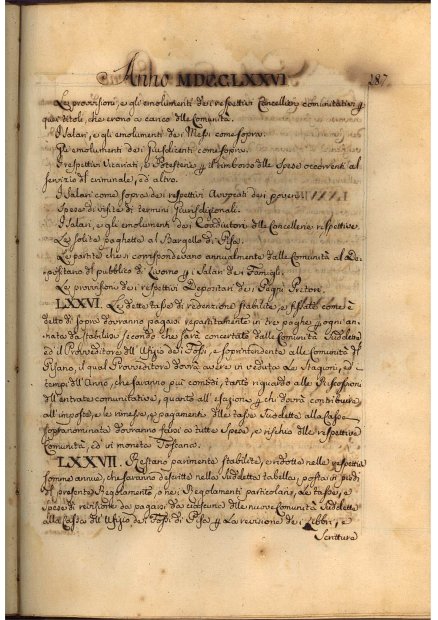 Anno MDCCLXXVI 287
Le provvisioni, e gli emolumenti dei respettivi Cancellieri comunitativi p
quei titoli, che erono a carico dlle Comunità.
I Salari, e gli emolumenti dei Messi come sopra.
Gli emolumenti dei Giusdicenti come sopra.
I respettivi Vicariati, e Potesterie p il rimborso dlle Spese occorrenti al
servizio dl criminale, ed altro.
I Salari come sopra dei respettivi Avvocati dei poveri
Spese di visite di termini Giurisdizionali.
I Salari, e gli emolumenti dei Coadiutori dlle Cancellerie respettive.
Le solite paghette al Bargello di Pisa.
Le partite che si corrispondevano annualmente dalle Comunità al De-
positario dl pubblico di Livorno p i Salari dei Famigli.
Le provvisioni dei respettivi Depositari dei Pegni Pretori.
LXXVI. Le dette tasse di redenzione stabilite, e fissate come è
detto di sopra dovranno pagarsi repartitamente in tre paghe p ogni an-
nata da stabilirsi secondo che sarà concertato dalle Comunità Suddette
ed il Provveditore dll' Ufizio dei Fossi, e soprintendente alle Comunità dl
Pisano, il qual Provveditore dovrà avere in veduta le Stagioni, ed i
tempi dll' Anno, che saranno più comodi, tanto riguardo alle Riscossioni
dll' entrate comunitative, quanto all' esazione p chi dovrà contribuire
all' imposte, e le rimesse, e pagamenti dlle tasse Suddette alla Cassa
soprannominata dovranno farsi a tutte Spese, e rischio dlle respettive
Comunità, ed in moneta Toscana.
LXXVII. Restano parimente stabilite, e ridotte nelle respettive
somme annue, che saranno descritte nella Suddetta tabella, posta in piedi
dl presente Regolamento, o nei Regolamenti particolari, le tasse, e
spese di revisione da pagarsi da ciascuna dlle nuove Comunità Suddette
alla Cassa dll' Ufizio dei Fossi di Pisa p la revisione dei Libbri, e
Scritture